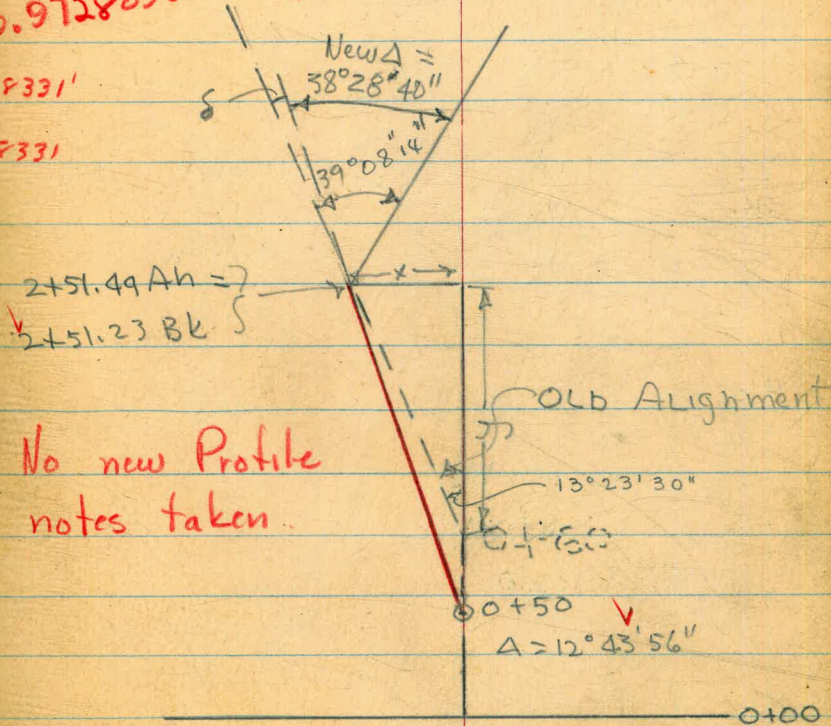 8331'
8331
New Δ =
38°28'40"
δ
39°08'14"
x
2+51.49 Ah =
2+51.23 Bk
OLD Alignment
y
No new Profile
notes taken.
13°23'30"
0+60
0+50
Δ = 12°43'56"
0+00